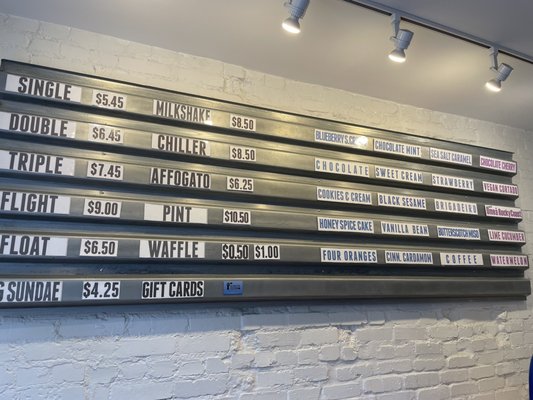 SINGLE $5.45 MILKSHAKE $8.50 CHOCOLATE MINT SEA SALT CARAMEL CHOCOLATE CHERRY
DOUBLE $6.45 CHILLER $8.50 CHOCOLATE SWEET CREAM STRAWBERRY VEGAN CORTADO
TRIPLE $7.45 AFFOGATO $6.25 COOKIES & CREAM BLACK SESAME BRIGADEIRO
FLIGHT $9.00 PINT $10.50 HONEY SPICE CAKE VANILLA BEAN BUTTERSCOTCH MISO LIME CUCUMBER
FLOAT $6.50 WAFFLE $0.50 $1.00 FOUR ORANGES CINN. CARDAMOM COFFEE WATERMELON
SUNDAE $4.25 GIFT CARDS